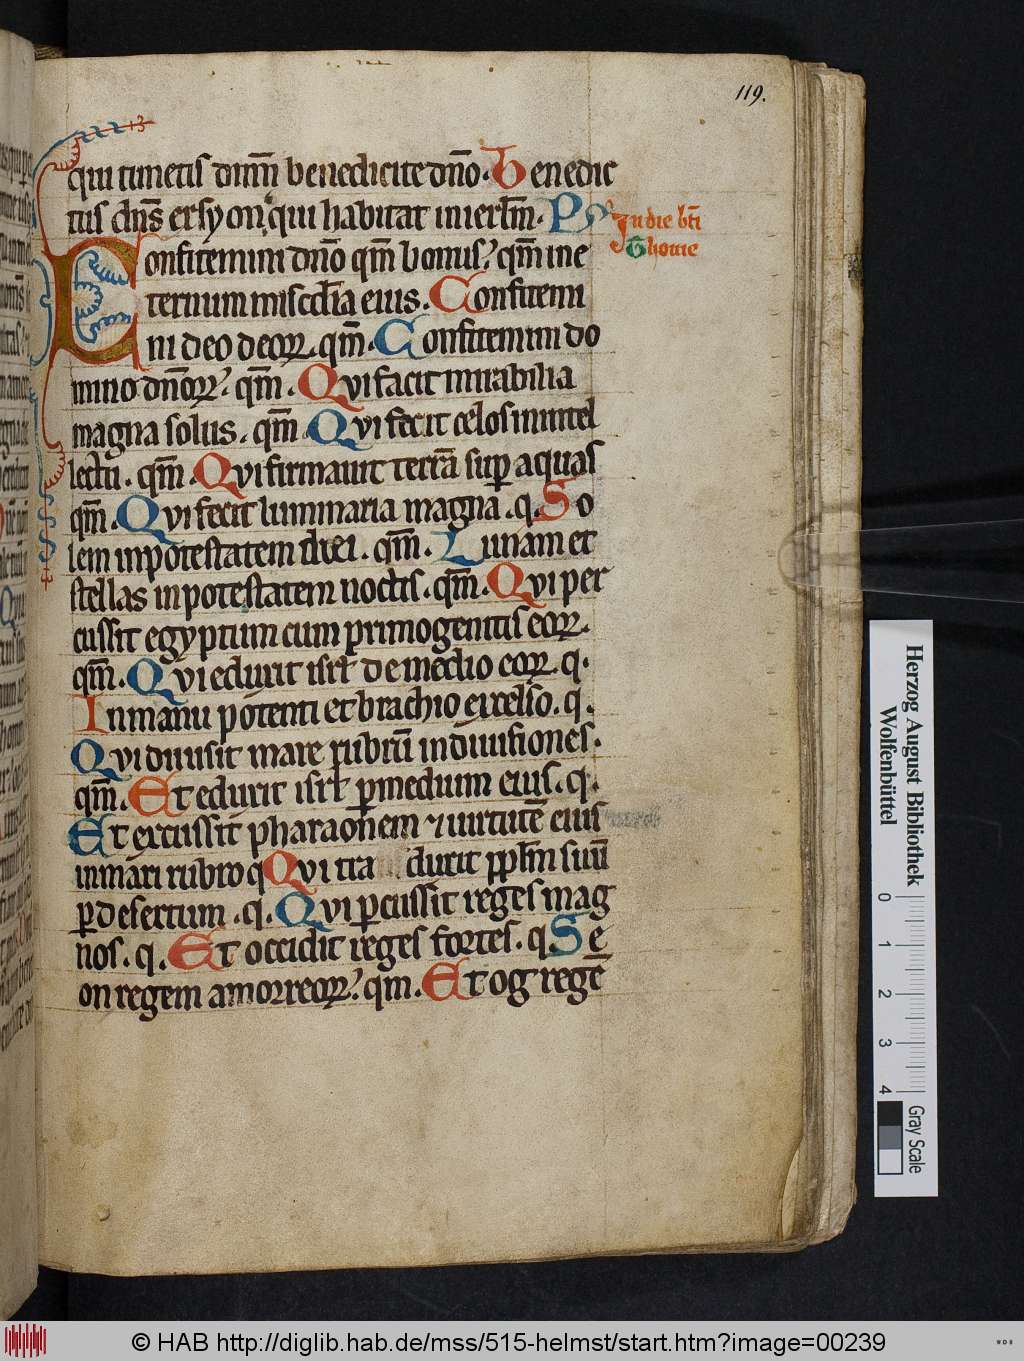 119.
qui timetis dnm̄ benedicite dn̄o. Benedic
tus dn̄s ex syon, qui habitat in ierl̄m. Ps
In die bt̄i
Thome
Confitemini dn̄o qm̄ bonus? qm̄ in e
ternum misc̄dia eius. Confitemi
ni deo deoꝝ. qm̄. Confitemini do
mino dn̄oꝝ? qm̄. Qvi facit mirabilia
magna solus. qm̄. Qvi fecit celos in intel
lectu. qm̄. Qvi firmauit terrā sup̱ aquas
qm̄. Qvi fecit luminaria magna. q. So
lem in potestatem diei. qm̄. Lunam et
stellas in potestatem noctis. qm̄. Qvi per
cussit egyptum cum primogenitis eoꝝ.
qm̄. Qvi eduxit isrl̄ de medio eoꝝ. q.
In manu potenti et brachio excelso. q.
Qvi diuisit mare rubrū in diuisiones.
qm̄. Et eduxit isrl̄ ꝑ medium eius. q.
Et excussit pharaonem ⁊ uirtutē eius
in mari rubro q Qvi tra duxit pp̄l̄m suū
ꝑ desertum. q. Qvi ꝑcussit reges mag
nos. q. Et occidit reges fortes. q. Se
on regem amorreoꝝ? qm. Et og regē
Herzog August Bibliothek
Wolfenbüttel
0 1 2 3 4
Gray Scale
© HAB http://diglib.hab.de/mss/515-helmst/start.htm?image=00239